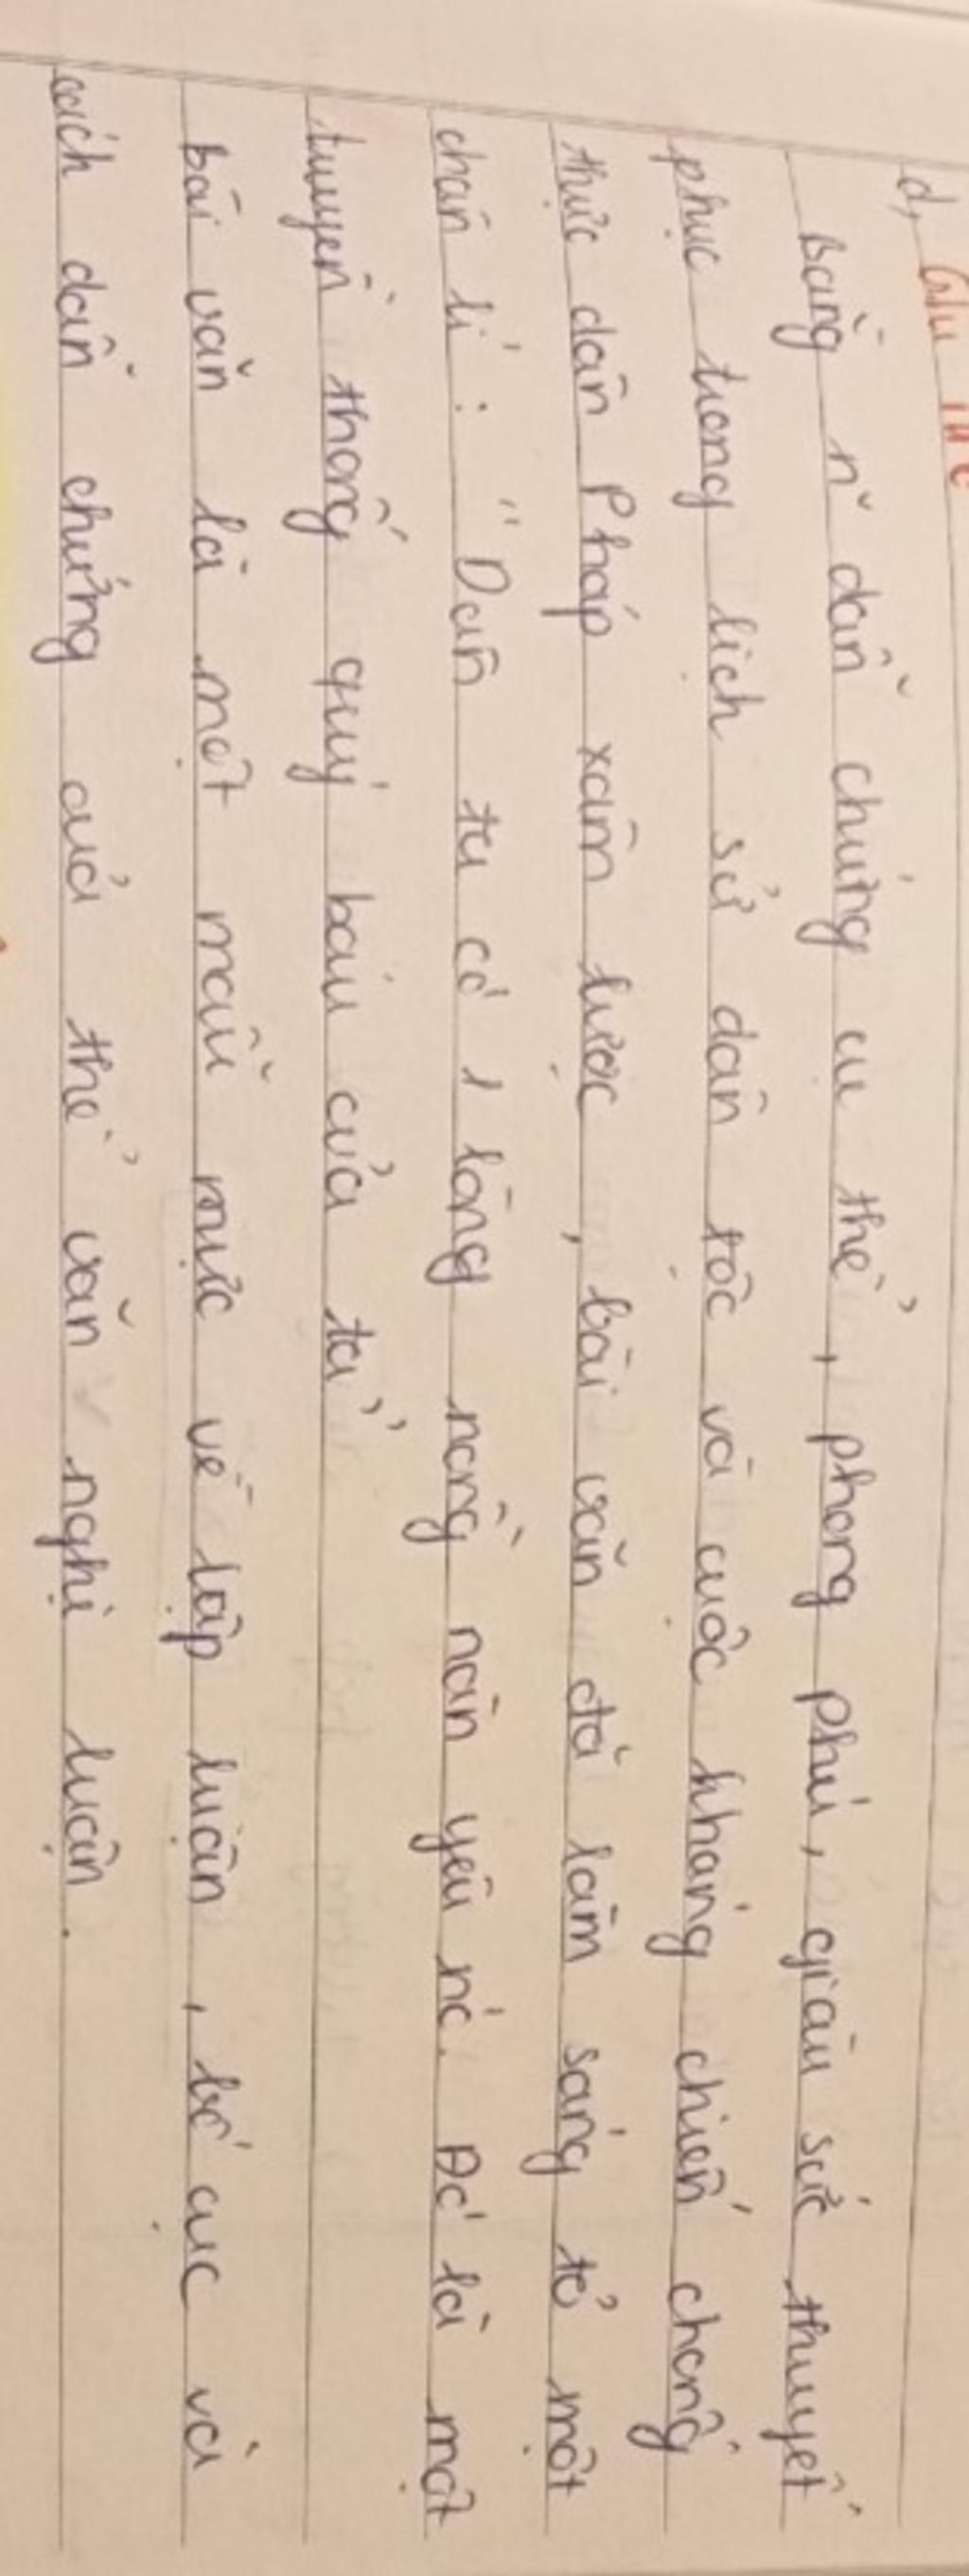 d,
Bằng n~ dẫn chứng cụ thể, phong phú, giàu sức thuyết
phục trong lịch sử dân tộc và cuộc kháng chiến chống
thực dân Pháp xâm lược, bài văn đã làm sáng tỏ một
chân lí : "Dân ta có 1 lòng nồng nàn yêu nc'. Đó là một
truyền thống quý báu của ta"
bài văn là một mẫu mực về lập luận, bố cục và
cách dẫn chứng của thể văn nghị luận.